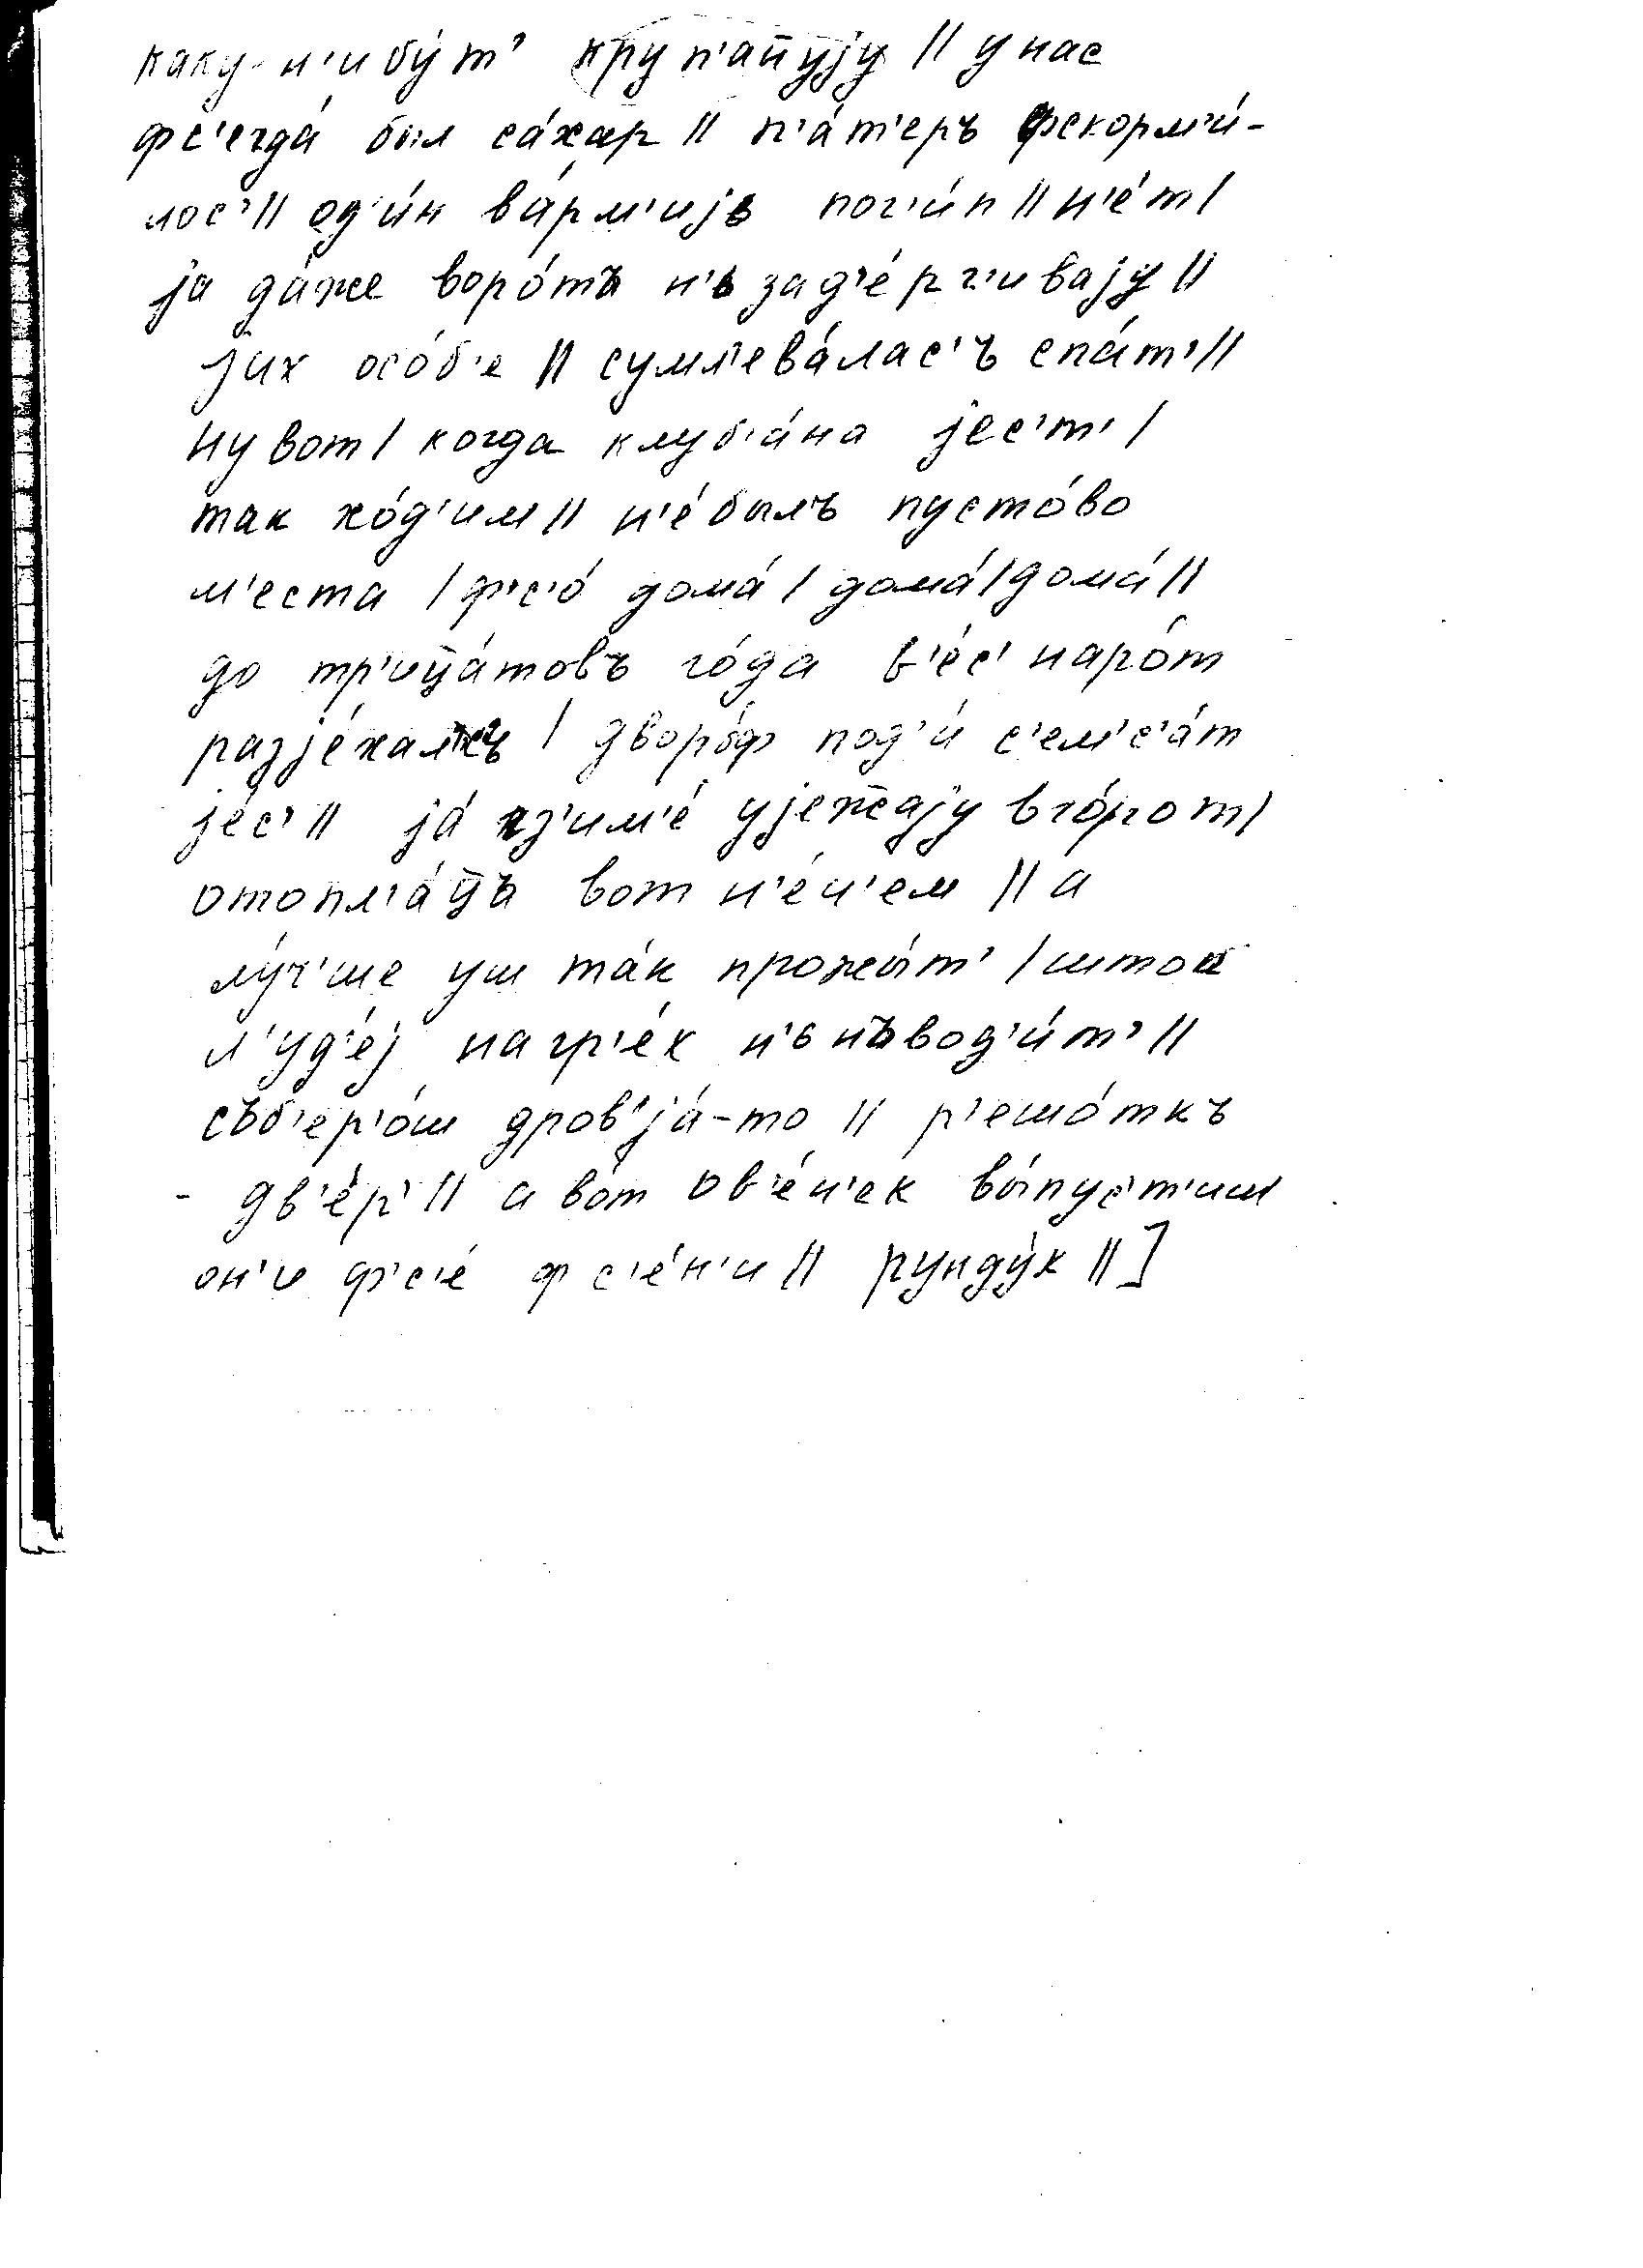 каку-н'ибу́т' круп'ан̅у̅jу || у нас
фс'егда́ был са́хар || п'а́т'еръ фскорм'и́-
лос' || од'и́н ва́рм'иjь пог'и́п || н'е́т |
jа да́же воро́тъ н'ь зад'е́рг'иваjу ||
jих осо́б'е || сумл'ева́лас'ъ спа́т' ||
ну вот | когда клуб'а́на jес'т' |
так хо́д'им || н'е́ былъ пусто́во
м'еста | ф'с'о́ дома́ | дома́ | дома́ ||
до тр'иц̅а́товъ го́да в'е́с' наро́т
разjе́халсъ | дворо́ф под'и́ с'ем'с'а́т
jе́с' || jа́ кз'им'е́ уjеж̅аjу вго́рот |
отопл'а́ц̅ъ вот н'е́ч'ем || а
лу́ч'ше уш та́к прожы́т' | штоп
л'уд'е́j на гр'е́х н'ь нъвод'и́т' ||
съб'ер'о́ш дров'jа́-то || р'ешо́ткъ
- дв'е́р' || а во́т ов'е́ч'ек вы́пус'т'иш
он'и ф'с'е́ ф с'е́н'и || рунду́к || ]